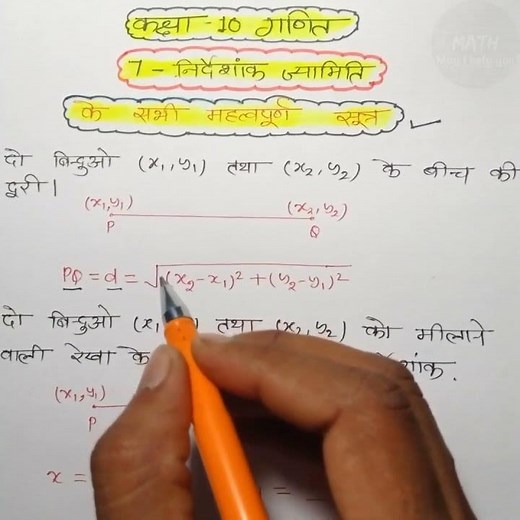 कक्षा - 10 गणित
7 - निर्देशांक ज्यामिति
के सभी महत्वपूर्ण सूत्र
दो बिन्दुओ (x₁, y₁) तथा (x₂, y₂) के बीच की
दूरी।
(x₁, y₁) (x₂, y₂)
P Q
PQ = d = √(x₂-x₁)² + (y₂-y₁)²
दो बिन्दुओ (x₁ ) तथा (x₂, y₂) को मीलाने
वाली रेखा के
(x₁, y₁)
P
x = =